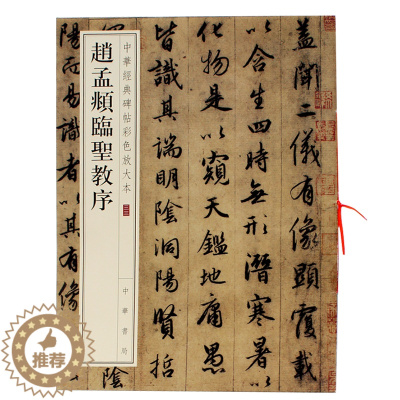 盖聞二儀有像顯覆載
以含生四時無形潛寒暑以
化物是以窺天鑑地庸愚
皆識其端明陰洞陽賢哲
中華經典碑帖彩色放大本
趙孟頫臨聖教序
中華書局
陰
陽而易識者以其有像
推荐